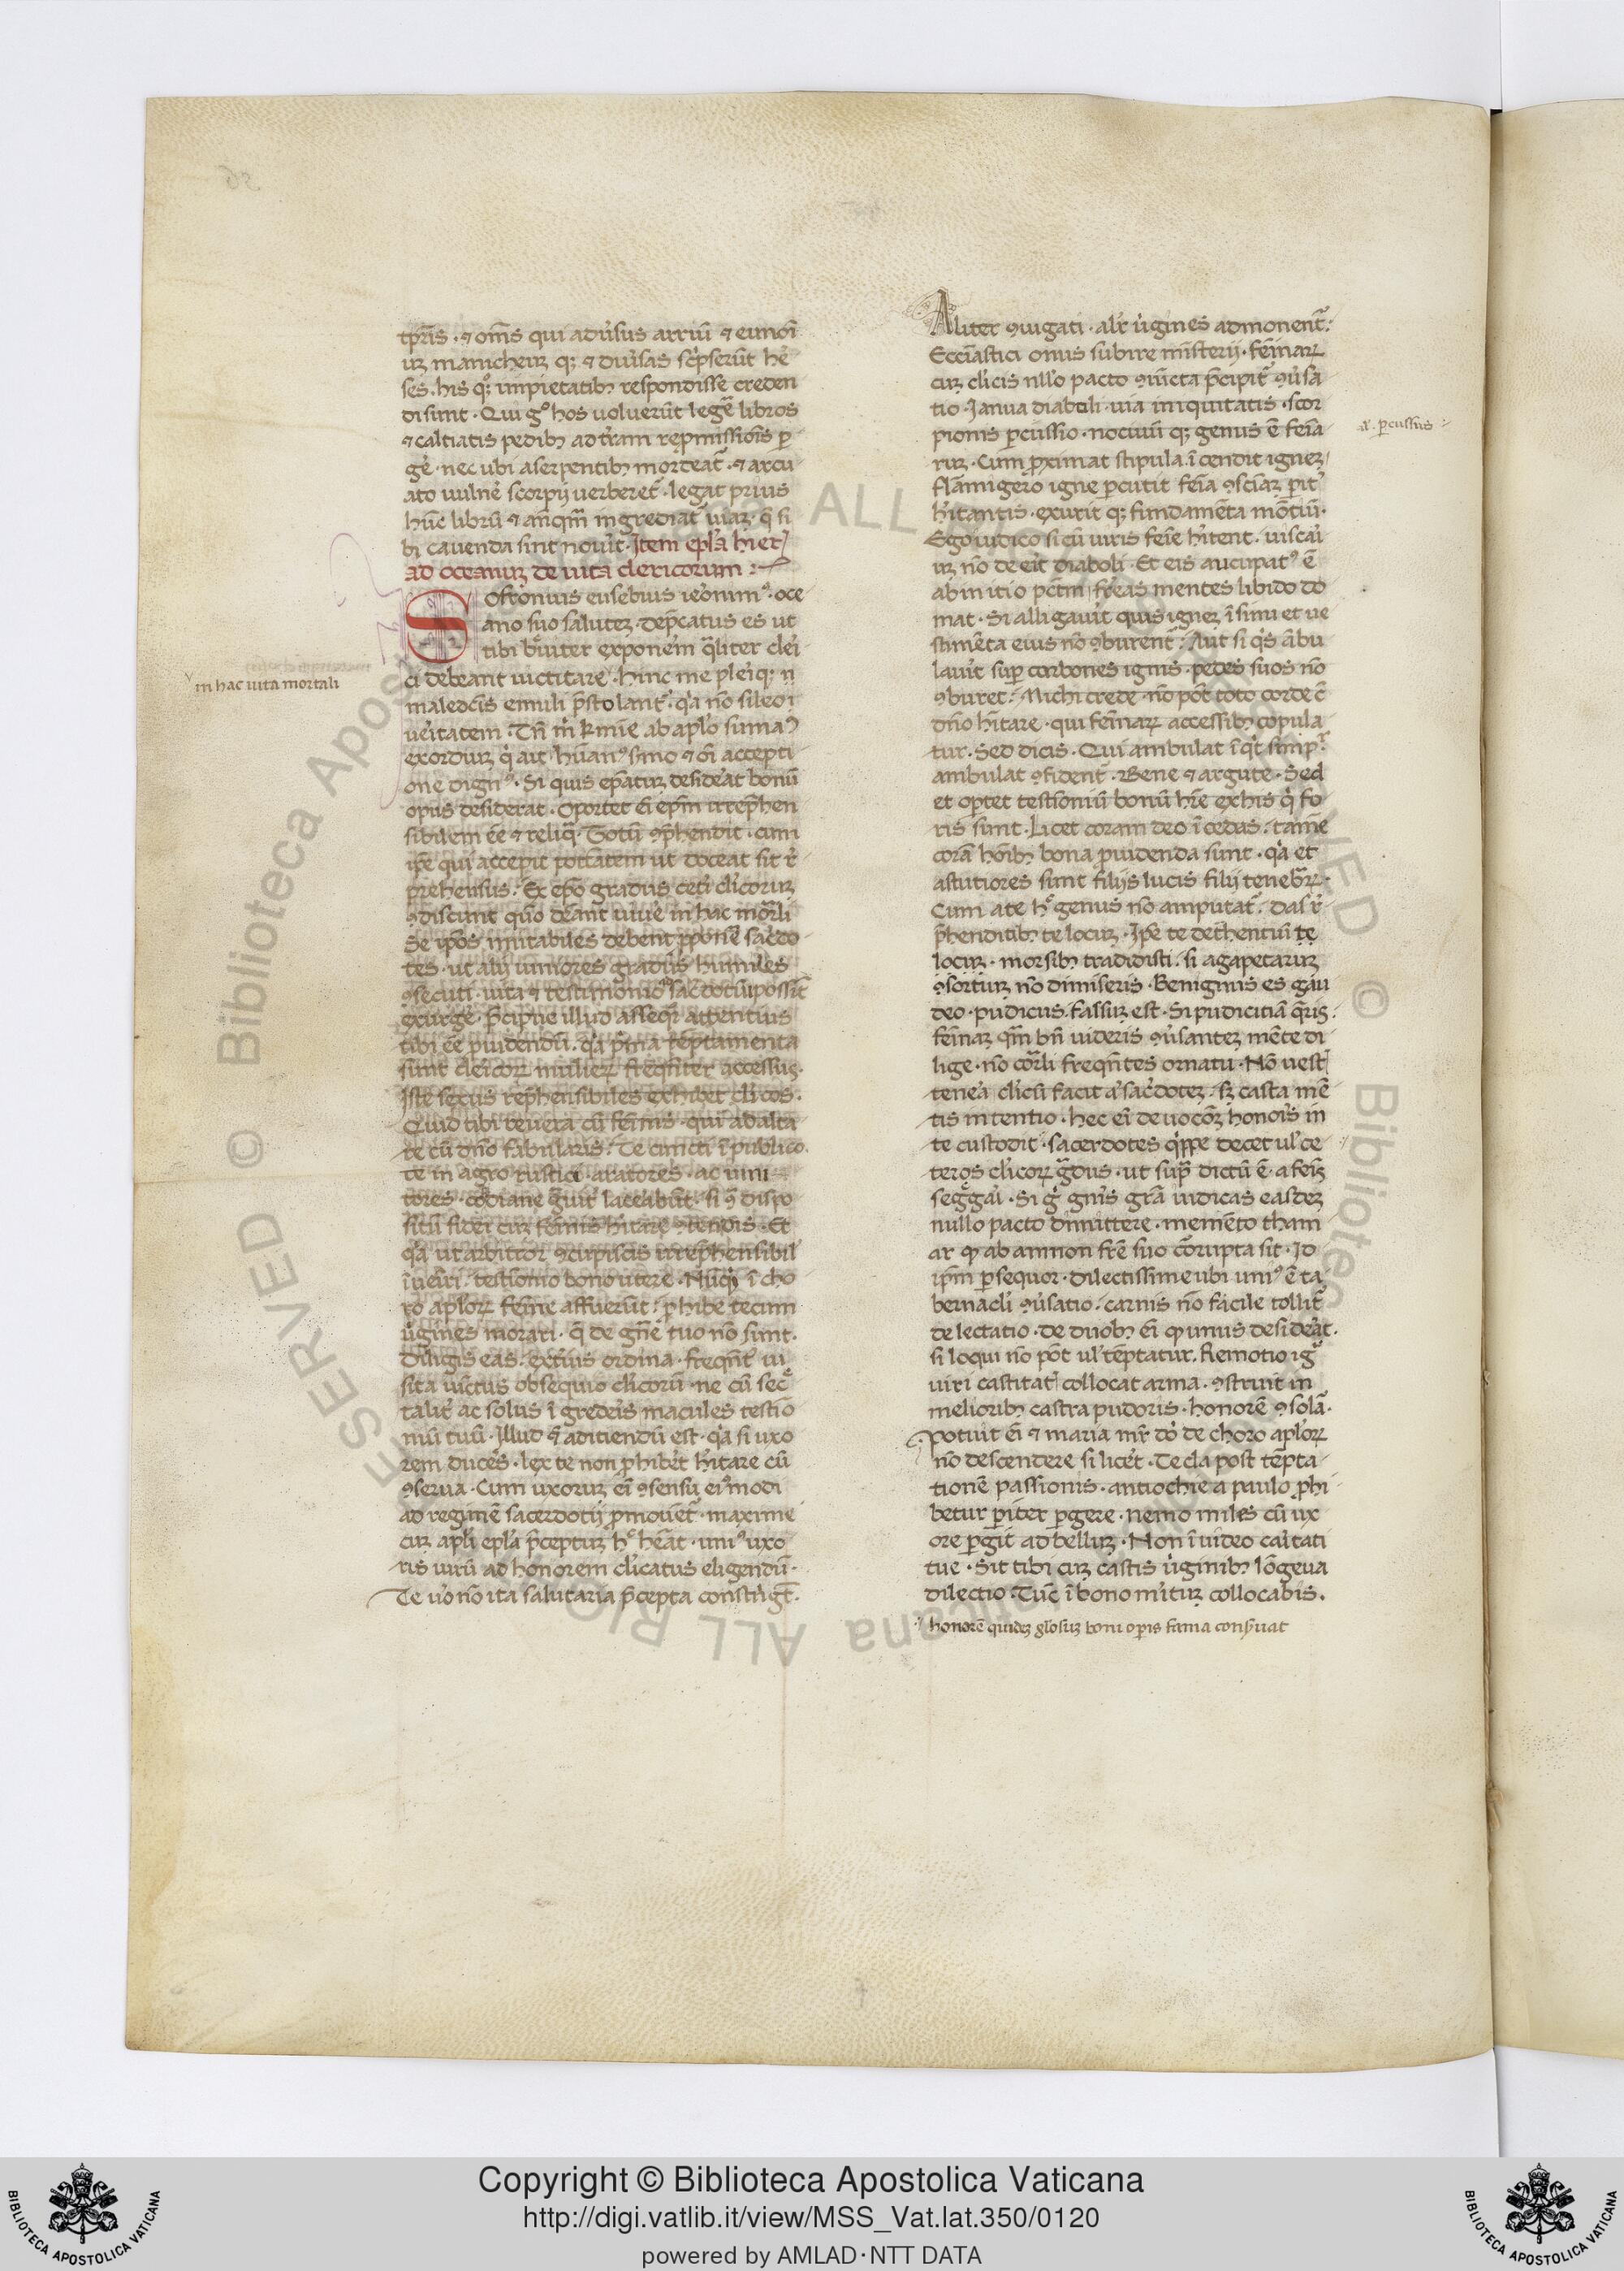 tpris · ⁊ oms qui adusus arriu ⁊ eunoi
uz manicheuz q; ⁊ diusas scpserut he
ses. his q; impietatib; respondisse creden
di sunt · Qui g° hos uoluerit lege libros
⁊ calciatis pedib; ad tram repmissiois p
ge · nec ubi a serpentib; mordeat · ⁊ arcu
ato uulne scorpij uerberet · legat prius
huc libru ⁊ anqm ingrediat uiaz · q si
bi cauenda sint nouit · Item epla hier
ad oceanuz de uita clericorum :~
Sofronius eusebius ieronim⁹ · oce
ano suo salutez · depcatus es ut
tibi breuiter exponem qliter clei
ci debeant uictitare · hinc me pleiq; n
maledcis emuli pstolant · qa no sileo
ueitatem · Tn
exordiuz q ait · human⁹ smo ⁊ oi accepti
one dign⁹ · Si quis epatuz desideat bonu
opus desiderat · Oportet ei epm irrephen
sibilem ee ⁊ reliq · Totu ꝯphendit · cum
ipe qui accepit potatem ut doceat sit re
prehensus · Ex epo gradus ceti clicoruz
ꝯdiscunt quo deant uiue in hac morli
Se ipos imitabiles debent ppone sacdo
tes · ut alij iuniores gradus humiles
ꝯsecuti · uita ⁊ testimonio sacdotu possit
exurge · Pcipue illud asseq attentius
tibi ee puidendu · qa pma temptamenta
sunt cleicoz mulierz freqnter accessus ·
Iste sexus rephensibiles exhibet clicos ·
Quid tibi reuera cu feminis · qui ad alta
re cu dno fabularis · Te cuncti i publico
te in agro rustici · aratores · ac uini
tores · cotidiane guit lacerabut · si ꝯ dispo
situ fidei cuz feminis hitare ꝯtendis · Et
qa ut arbitror ꝯcupiscis irrephensibil
iueiri · testionio bono utere · Nuqi i cho
ro aploz femine affuerut · phibe tecum
ugines morari · q de gne tuo no sunt ·
Diligis eas · exterius ordina · freqnt ui
sita uictus obsequio clicoru · ne cu sec
talit ac solus i gredeis macules testio
niu tuu · Illud ꝙ aditiendu est · qa si uxo
rem duces · lex te non phibet hitare cu
ꝯserua · Cum uxoruz ei ꝯsensu eimodi
ad regime sacerdotij pmouet · maxime
cuz apli epla pceptuz h° heat · uni⁹ uxo
ris uiru ad honorem clicatus eligendu ·
Te uo no ita salutaria pcepta constrigt ·
in hac uita mortali
Aliter ꝯiugati · alir ugines admonent :
Ecciastici onus subire misterij · feminaz
cuz clicis nllo pacto ꝯiucta pcipit ꝯusa
tio · Ianua diaboli · uia iniquitatis · scor
pionis pcussio · nociuu q; genus e femia
ruz · Cum pximat stipula icendit ignez
flamigero igne pcutit femia ꝯsciaz pit
hitantis · exurit q; fundameta motiu ·
Ego iudico si cu uiris femie hitent · uiscai
uz no deeit diaboli · Et eis aucupat⁹ e
ab initio pctm ferreas mentes libido do
mat · Si alligauit quis ignez i sinu et ue
stimeta eius no ꝯburent · Aut si qs abu
lauit sup carbones ignis · pedes suos no
ꝯburet · Michi crede · no pot toto corde c
dno hitare · qui feminaz accessib; copula
tur · Sed dicis · Qui ambulat iqt simp
ambulat ꝯfident · Bene ⁊ argute · Sed
et optet testioniu bonu hre ex his q fo
ris sunt · Licet coram deo icedas · tame
cora hoib; bona puidenda sunt · qa et
astutiores sunt filijs lucis filij tenebraz ·
Cum a te h° genus no amputat · das re
phenditib; te locuz · Ipe te dethentiu te
locuz · morsib; tradidisti · si agapetaruz
ꝯsortiuz no dimiseris · Benignus es gau
deo · pudicus · falsuz est · Si pudicitia qris ·
feminaz qm bn uideris ꝯusantez mete di
lige · no corli freqntes ornatu · No uest
tenea clicu facit a sacdotez · sz casta me
tis intentio · hec ei deuocoz honois in
te custodit · sacerdotes qppe decet ul ce
teros clicoz gdus · ut sup dictu e · a femis
seggai · Si g gnis gra iudicas easdez
nullo pacto dimittere · memeto tham
ar ꝙ ab amnon fre suo corrupta sit · Id
ipm psequor · dilectissime ubi uni⁹ e ta
bernacli ꝯusatio · carnis no facile tollit
delectatio · de duob; ei ꝙ unus desideat ·
si loqui no pot ul teptatur · Remotio ig
uiri castitati collocat arma · ꝯstruit in
meliorib; castra pudoris · honore ꝯsola ·
Potuit ei ⁊ maria mr do de choro aploz
no descendere si licet · Tecla post tepta
tione passionis · antiochie a paulo phi
betur piter pgere · nemo miles cu ux
ore pgit ad belluz · Non iuideo caitati
tue · Sit tibi cuz castis uginib; logeua
dilectio · Tuc i bono mituz collocabis ·
al · pcussus
honore quidez glosuz boni opis fama conseruat
Copyright © Biblioteca Apostolica Vaticana
http://digi.vatlib.it/view/MSS_Vat.lat.350/0120
powered by AMLAD·NTT DATA
BIBLIOTECA APOSTOLICA VATICANA
BIBLIOTECA APOSTOLICA VATICANA